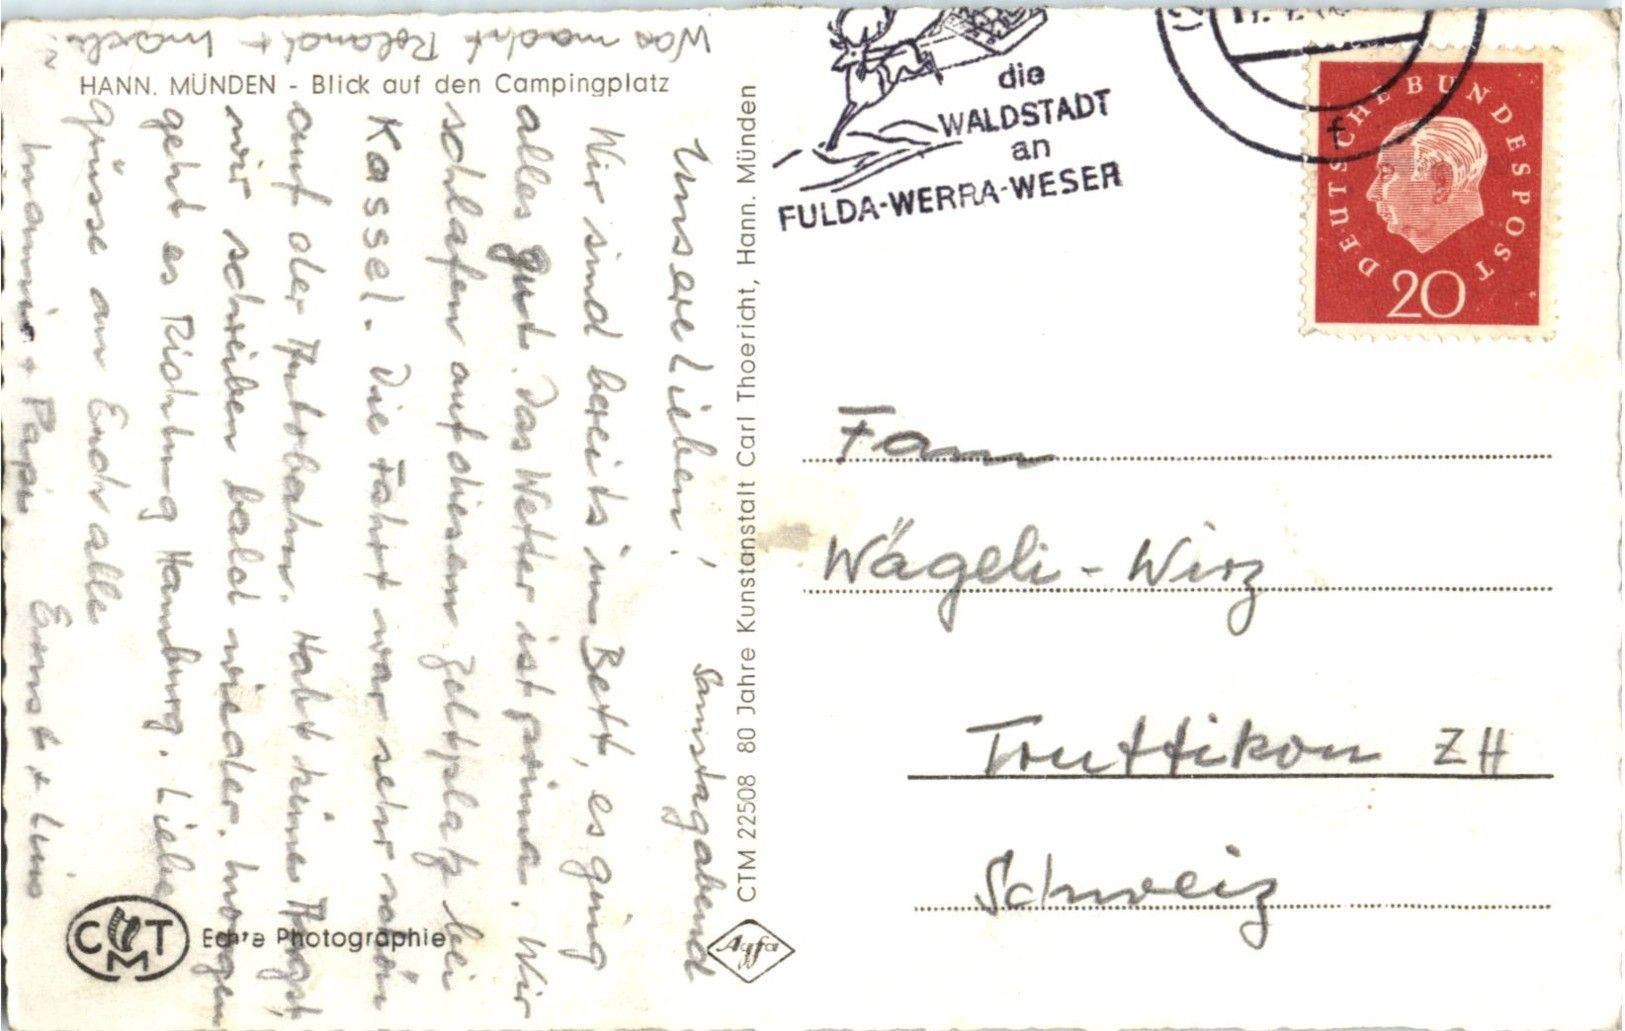 HANN. MÜNDEN - Blick auf den Campingplatz
Samstagabend
Unsere Lieben!
Wir sind bereits im Bett, es ging
alles gut. Das Wetter ist prima. Wir
schlafen auf diesem Zeltplatz bei
Kassel. Die Fahrt war sehr schön
auf der Autobahn. Habt keine Angst,
wir schreiben bald wieder. Morgen
geht es Richtung Hamburg. Liebe
Grüsse an Euch alle
Mammi + Papi Ernst + Luis
Was macht Roland +
CTM 22508 80 Jahre Kunstanstalt Carl Thoericht, Hann. Münden
die
WALDSTADT
an
FULDA-WERRA-WESER
f
DEUTSCHE BUNDESPOST
20
Fam
Wägeli - Wirz
Truttikon ZH
Schweiz
CTM
Echte Photographie
Agfa